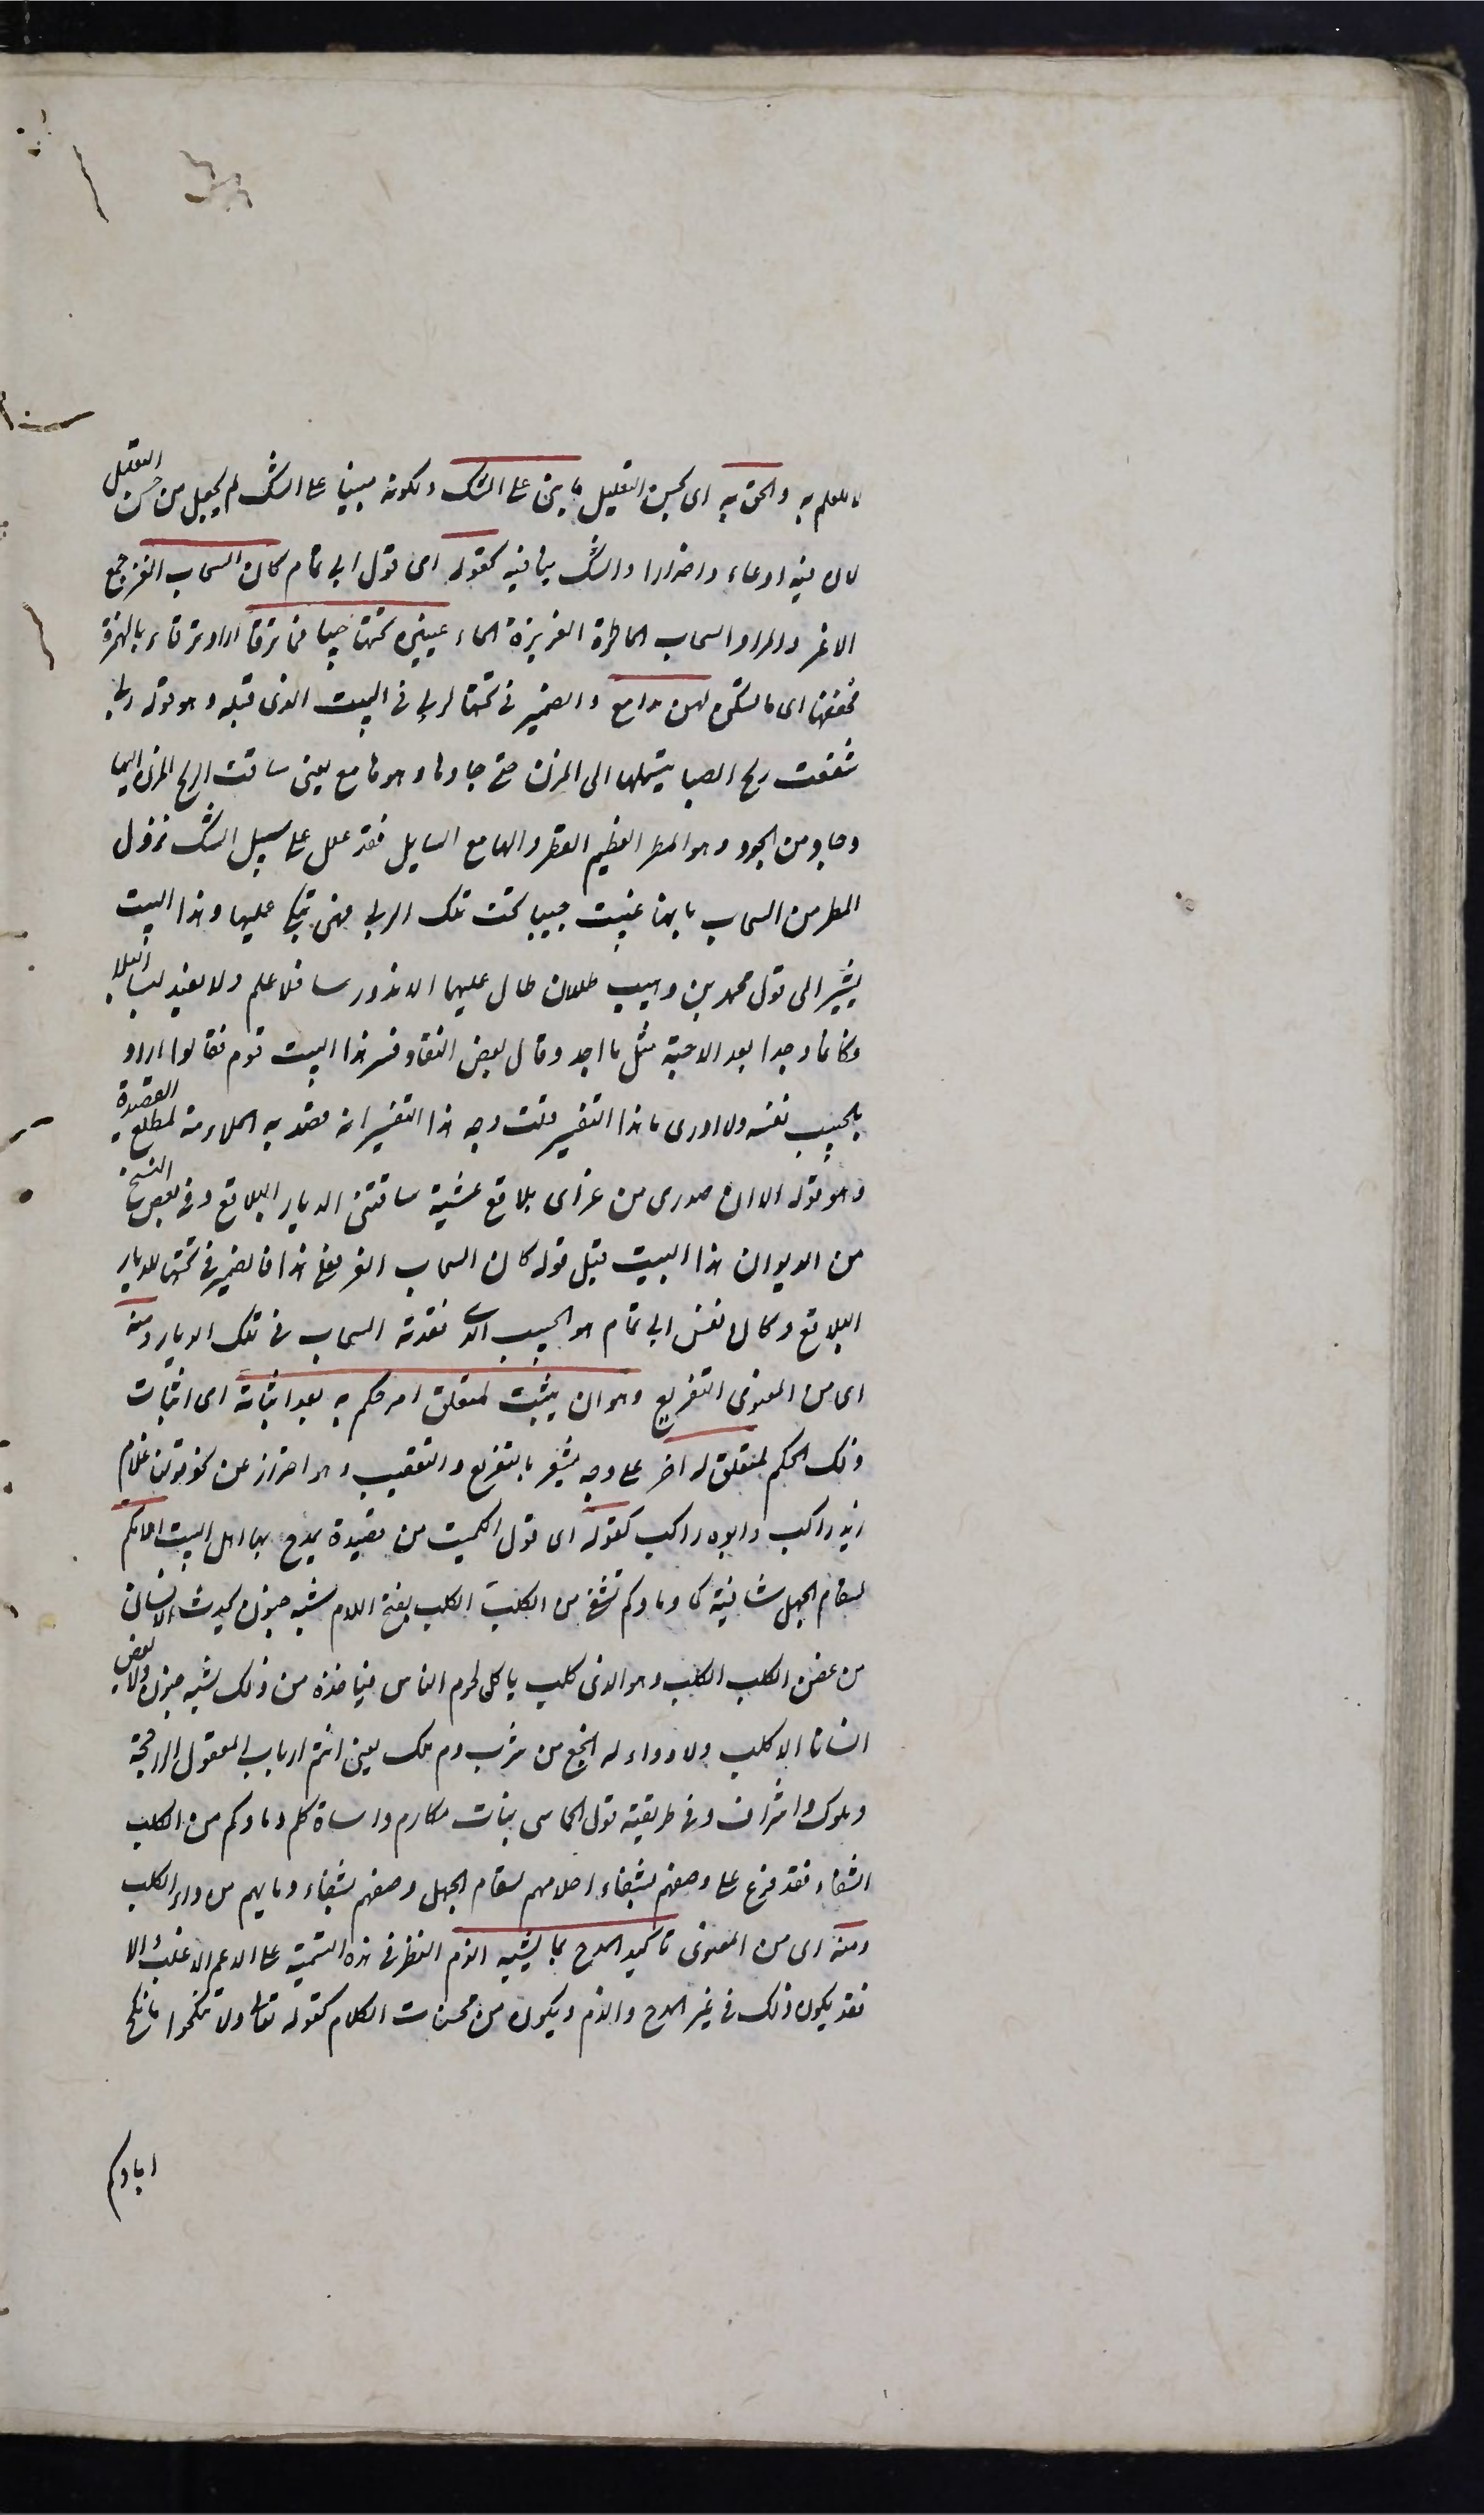 لا للعلم به والحق به اى بحسن التعليل ما بنى على الشك ولكونه مبنيا على الشك لم يجعل من حسن التعليل
لان فيه ادعاء واصرارا والشك ينافيه كقوله اى قول ابى تمام كان السحاب الغر جمع
الاغر والمراد السحاب الماطرة الغزيرة الماء غيبن تحتها حبيبا فما ترقا اراد ترقاء بالهمزة
فخففها اى ما تسكن لهن مدامع والضمير فى تحتها لربى فى البيت الذى قبله وهو قوله ربى
شفعت ريح الصبا بنسيمها الى المزن حتى جادها وهو هامع يعنى ساقت الريح المزن اليها
وجاد من الجود وهو المطر العظيم القطر والهامع السايل فقد علل على سبيل الشك نزول
المطر من السحاب بانها غيبت حبيبا تحت تلك الربى فهى تبكى عليها وهذا البيت
يشير الى قول محمد بن وهيب طللان طال عليهما الامد درسا فلا علم ولا نضد لبسا البلا
وكانما وجدا بعد الاحبة مثل ما اجد وقال بعض النقاد فسر هذا البيت قوم فقالوا اراد
بالحبيب نفسه ولا ادرى ما هذا التفسير قلت وجه هذا التفسير انه قصد به الملاءمة لمطلع القصيدة
وهو قوله الا ان صدرى من عزاى بلاقع عشية ساقتنى الديار البلاقع وفى بعض النسخ
من الديوان هذا البيت قبل قوله كان السحاب الغر فعلى هذا فالضمير فى تحتها للديار
البلاقع وكان نفس ابى تمام هو الحبيب الذى فقدته السحاب فى تلك الديار ومنه
اى من المعنوى التفريع وهو ان يثبت لمتعلق امر حكم به بعد اثباته اى اثبات
ذلك الحكم لمتعلق له اخر على وجه يشعر بالتفريع والتعقيب وهو احتراز عن نحو قولنا غلام
زيد راكب وابوه راكب كقوله اى قول الكميت من قصيدة يمدح بها اهل البيت احلامكم
لسقام الجهل شافية كما دماؤكم تشفى من الكلب الكلب بفتح اللام شبه جنون يحدث للانسان
من عض الكلب الكلب وهو الذى كلب ياكل لحوم الناس فياخذه من ذلك شبه جنون ولا يعض
انسانا الا كلب ولا دواء له انجع من شرب دم ملك يعنى انتم ارباب العقول الراجحة
وملوك واشراف وفى طريقته قول الحماسى بنات مكارم واساة كلم دماؤكم من الكلب
الشفاء فقد فرع على وصفهم بشفاء احلامهم لسقام الجهل وصفهم بشفاء دمايهم من داء الكلب
ومنه اى من المعنوى تاكيد المدح بما يشبه الذم النظر فى هذه التسمية على الاعم الاغلب والا
فقد يكون ذلك فى غير المدح والذم ويكون من محسنات الكلام كقوله تعالى ولا تنكحوا ما نكح
اباؤكم